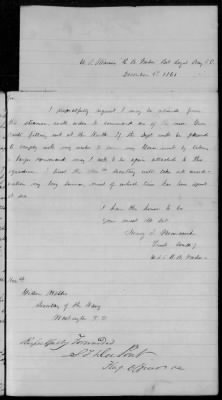 U.S. Steamer R. B. Forbes Port Royal Bay S.C.
December 4th 1861
Sir
I respectfully request I may be detached from
this steamer with orders to command one of the new Gun
boats fitting out at the North. If the Dept will be pleased
to comply with my wish
large command may I ask to be again attached to this
squadron. I trust the Dept
my long service most of which time has been spent
at sea
I have the honor to be
your most Obt Svt
Henry S. Newcomb
Lieut Comdg
U.S.S. R. B. Forbes
Hon
Gideon Welles
Secretary of the Navy
Washington D.C
Respectfully Forwarded
S F Du Pont
Flag Officer